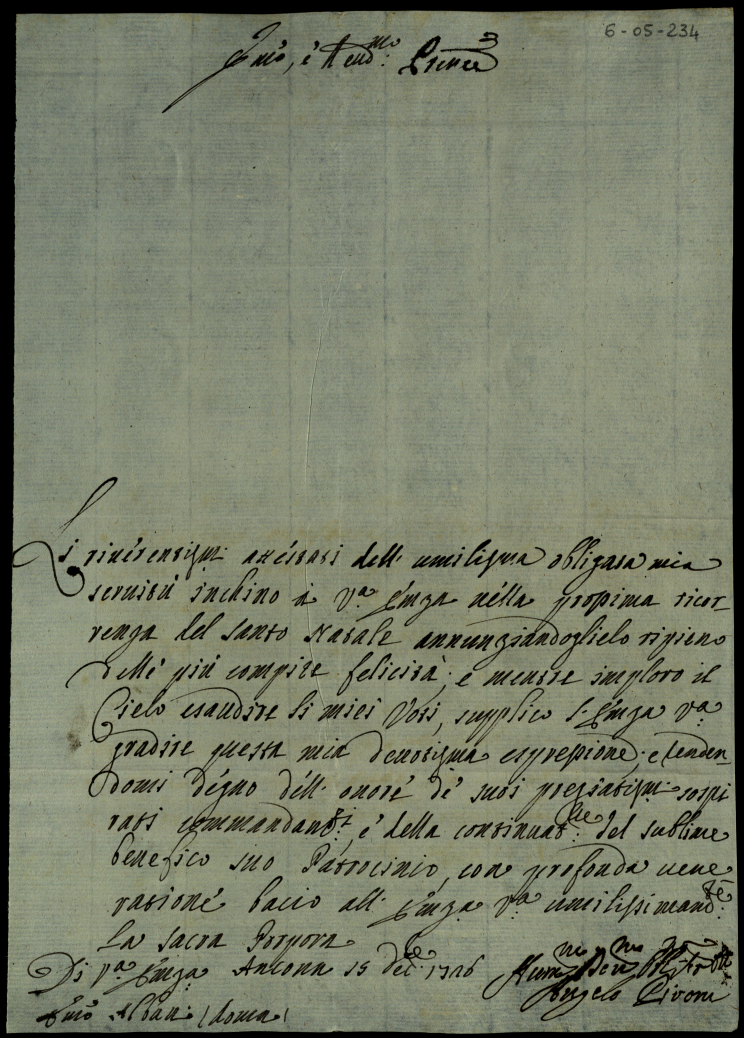 6-05-234
Emo, e Rendmo: Prencē
Li riverentissmi attestati dell' umilissma obligata mia
servitù inchino à Va Emza nella prossima ricor-
renza del Santo Natale annunziandoglielo ripieno
delle più compite felicità; e mentre imploro il
Cielo esaudire li miei Voti, supplico l'Emza Va
gradire questa mia devotissma espressione, e renden-
domi degno dell' onore de' suoi pregiatissmi sospi
rati commandamti, e della continuatne del sublime
benefico suo Patrocinio, con profonda vene
ratione bacio all' Emza Va umilissimamte
la Sacra Porpora
Di Va Emza Ancona 15 Dece 1726
Emo Albani (Roma)
Angelo